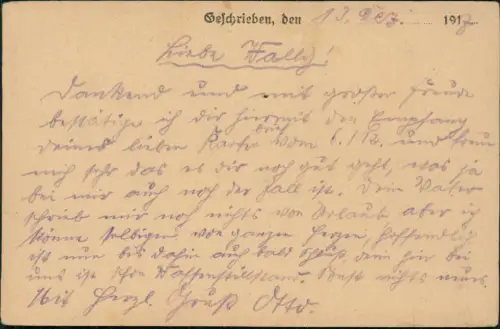 Geschrieben, den 13. Dez. 1917
Liebe Wally!
Dankend und mit großer Freude
bestätige ich dir hiermit den Empfang
deiner lieben Karte vom 6.12. und freue
mich sehr das es dir noch gut geht, was ja
bei mir auch noch der Fall ist. Dein Vater
schrieb mir noch nichts von Urlaub aber ich
könne selbigen von ganzen Herzen. Hoffendlich
ist nun bis dahin auch bald Schluß, denn hier bei
uns ist schon Waffenstillstand. Sonst nichts neues.
Mit Herzl. Gruß Otto.